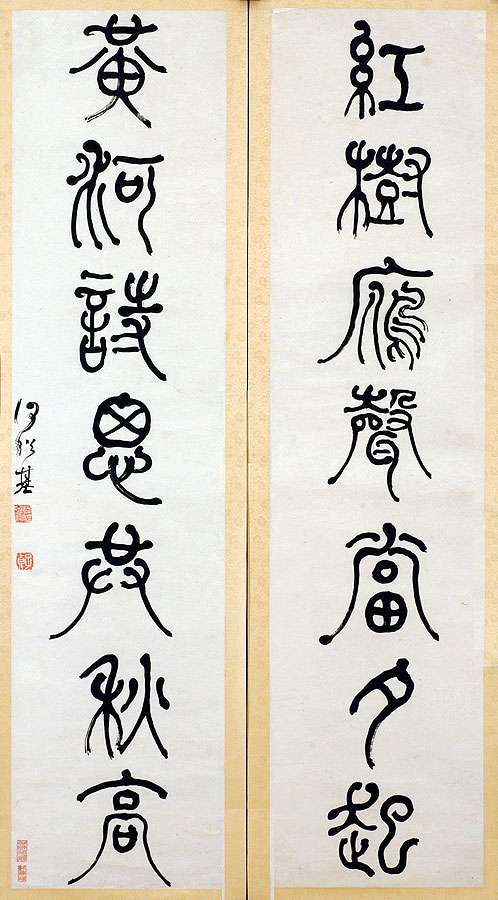 紅樹鴈聲當夕起
黃河詩思共秋高
何紹基